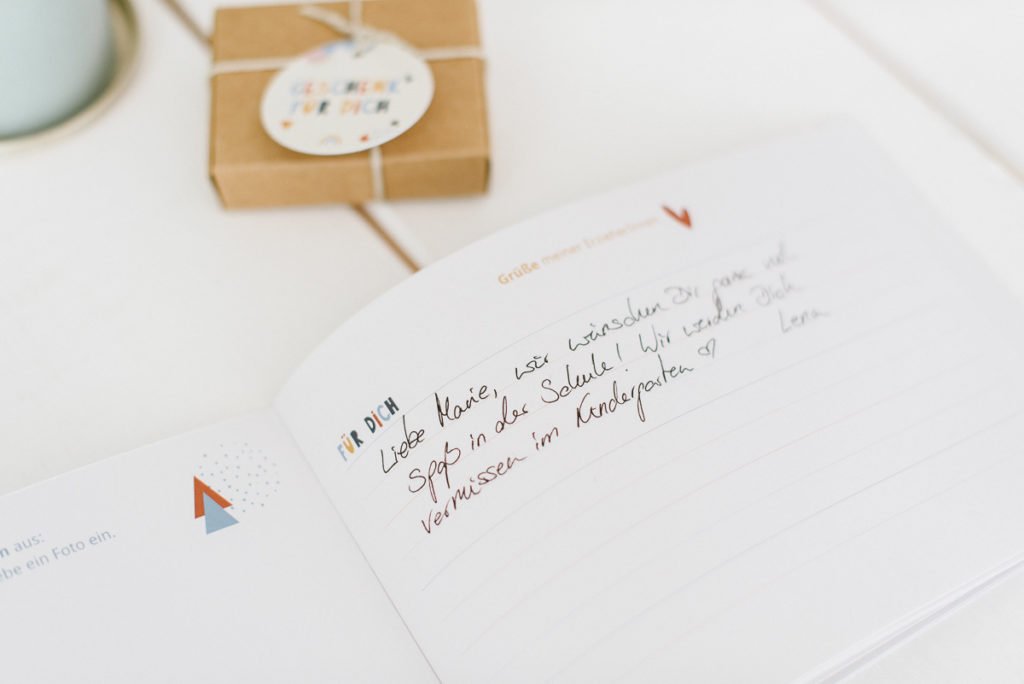 GESCHENK
FÜR DICH
Grüße meiner Erzieherinnen
FÜR DICH
Liebe Marie, wir wünschen Dir ganz viel
Spaß in der Schule! Wir werden Dich
vermissen im Kindergarten ♡ Lena
n aus:
ebe ein Foto ein.